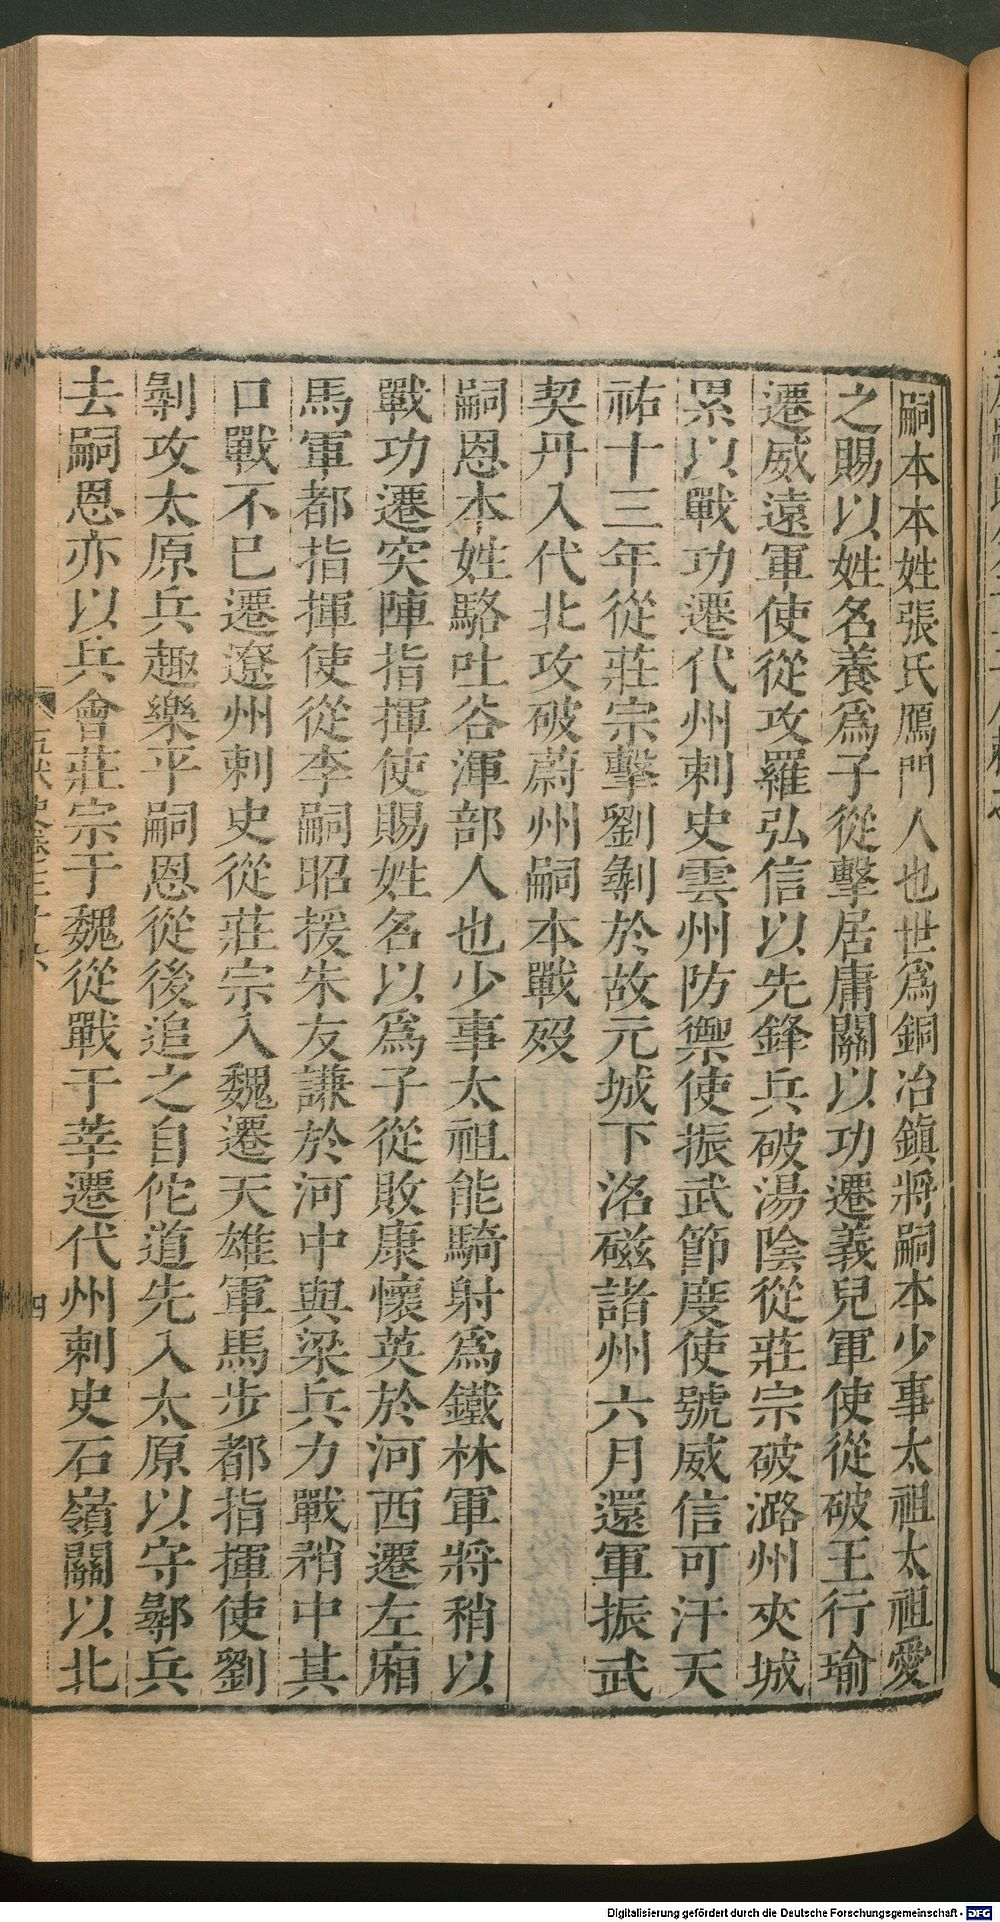 嗣本本姓張氏鴈門人也世爲銅冶鎭將嗣本少事太祖太祖愛
之賜以姓名養爲子從擊居庸關以功遷義兒軍使從破王行瑜
遷威遠軍使從攻羅弘信以先鋒兵破湯陰從莊宗破潞州夾城
累以戰功遷代州刺史雲州防禦使振武節度使號威信可汗天
祐十三年從莊宗擊劉鄩於故元城下洛磁諸州六月還軍振武
契丹入代北攻破蔚州嗣本戰歿
嗣恩本姓駱吐谷渾部人也少事太祖能騎射爲鐵林軍將稍以
戰功遷突陣指揮使賜姓名以爲子從敗康懷英於河西遷左廂
馬軍都指揮使從李嗣昭援朱友謙於河中與梁兵力戰矟中其
口戰不已遷遼州刺史從莊宗入魏遷天雄軍馬步都指揮使劉
鄩攻太原兵趣樂平嗣恩從後追之自佗道先入太原以守鄩兵
去嗣恩亦以兵會莊宗于魏從戰于莘遷代州刺史石嶺關以北
五代史卷三十六
四
Digitalisierung gefördert durch die Deutsche Forschungsgemeinschaft - DFG